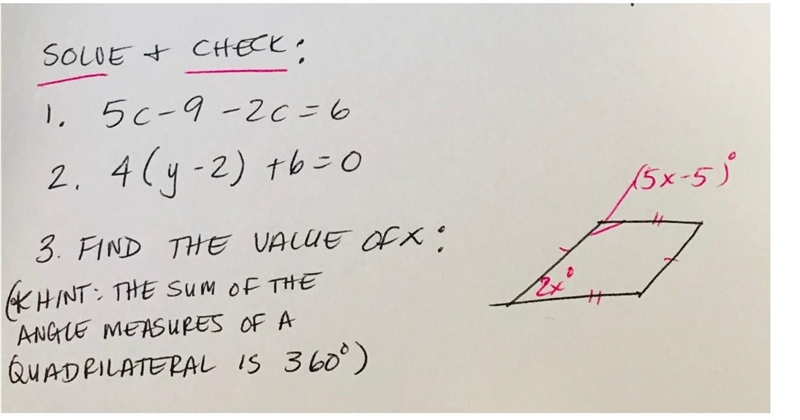 SOLVE + CHECK:
1. 5c-9-2c=6
2. 4(y-2)+6=0
3. FIND THE VALUE OF X:
(* HINT: THE SUM OF THE
ANGLE MEASURES OF A
QUADRILATERAL IS 360°)
(5x-5)°
2x°